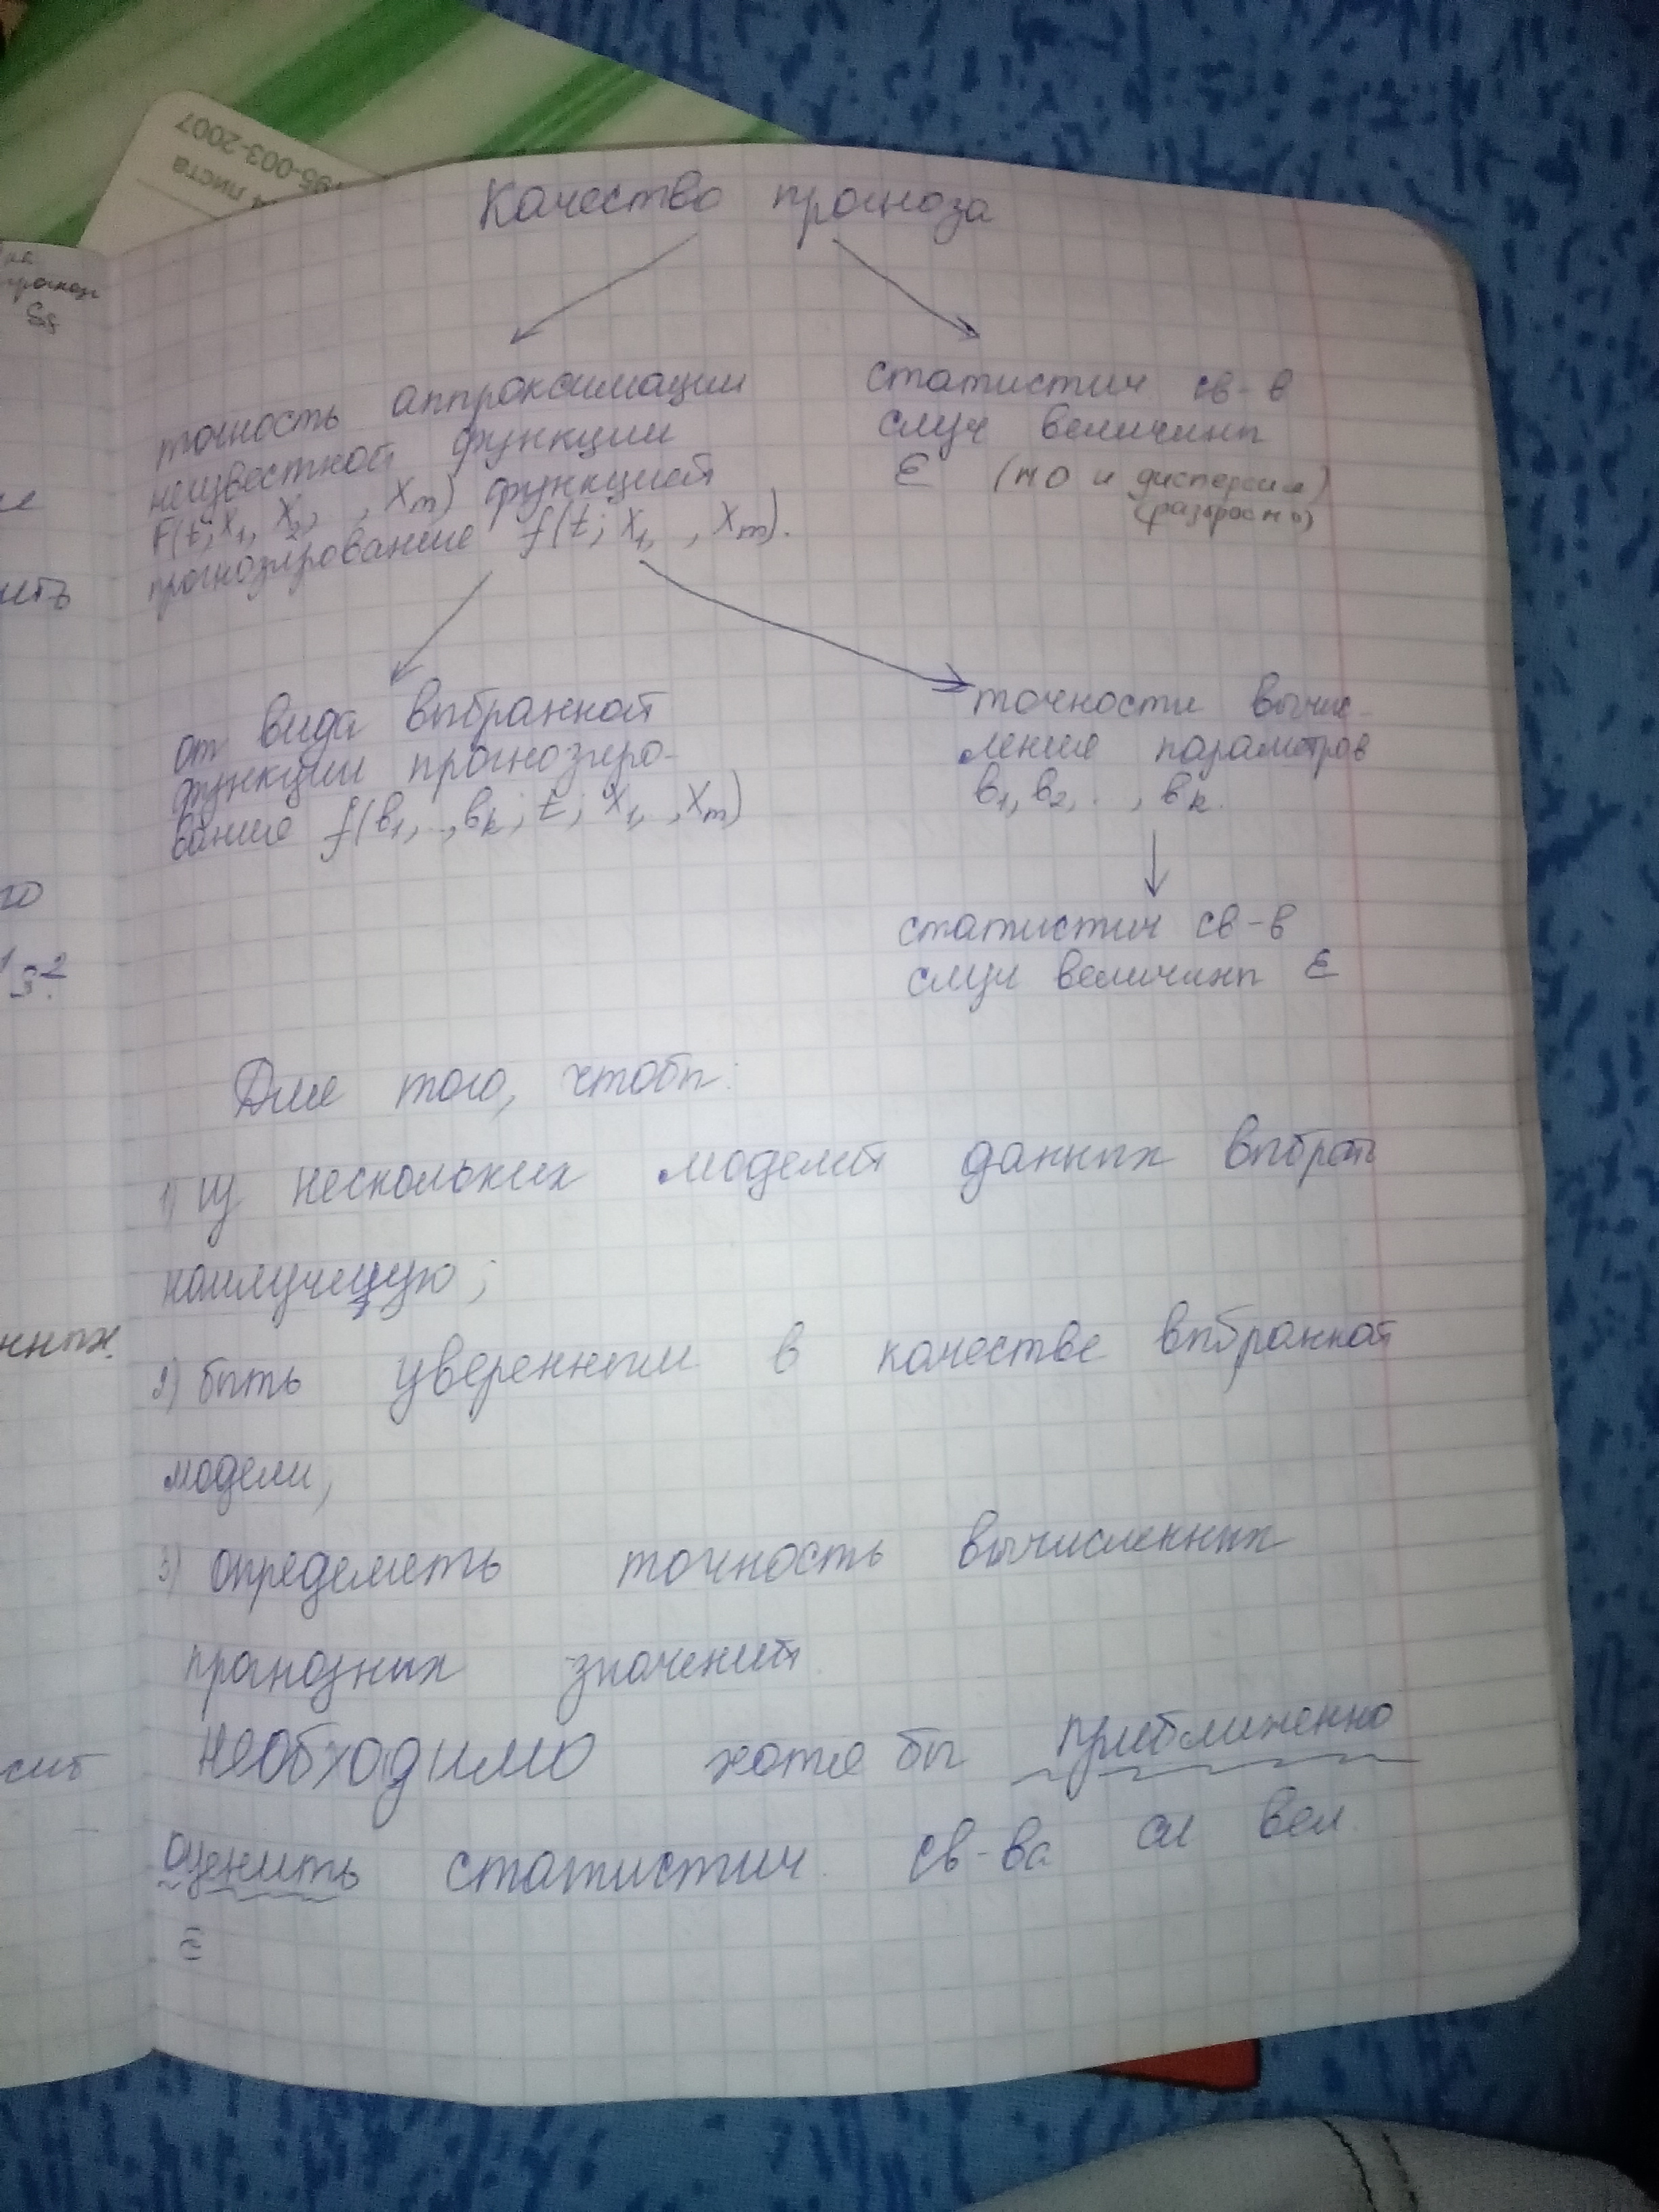 4 листа
195-003-2007
Качество прогноза
точность аппроксимации
неизвестной функции
F(t; X₁, X₂, , Xₘ) функцией
прогнозирование f(t; X₁, , Xₘ).
статистич св-в
случ величины
ε (МО и дисперсии)
(разброс)
от вида выбранной
функции прогнозиро-
вание f(в₁, .., вₖ; t; X₁, , Xₘ)
точности вычис-
ление параметров
в₁, в₂, .. , вₖ.
статистич св-в
случ величины ε
Для того, чтобы:
1) из нескольких моделей данных выбрать
наилучшую;
2) быть уверенным в качестве выбранной
модели,
3) определить точность вычисленных
прогнозных значений.
Необходимо хотя бы приближенно
оценить статистич. св-ва сл вел.
прогноз
нных.
S²